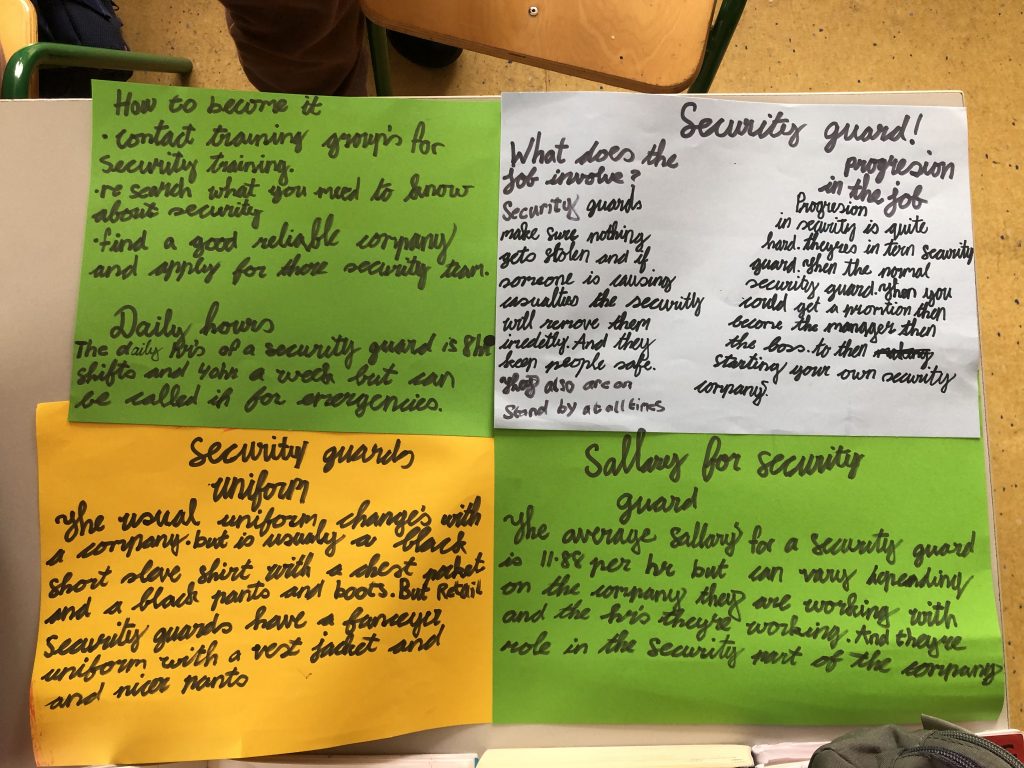 How to become it
· contact training group's for
security training.
· re search what you need to know
about security
· find a good reliable company
and apply for those security team.
Daily hours
The daily hr's of a security guard is 8 hr
shifts and 40hr a week but can
be called in for emergencies.
Security guard!
What does the
job involve?
Security guards
make sure nothing
gets stolen and if
someone is causing
usualties the securitly
will remove them
imedetly. And they
keep people safe.
They also are on
Stand by at all times
progresion
in the job
Progresion
in security is quite
hard. theyres in tern security
guard. Then the normal
security guard. Then you
could get a promtion then
become the manager then
the boss. to then
starting your own security
company.
Security guards
uniform
The usual uniform change's with
a company. but is usualy a black
short sleve shirt with a chest pocket
and a black pants and boots. But Retail
Security guards have a fanceyer
uniform with a vest jacket and
and nicer pants
Sallary for security
guard
The average sallary for a security guard
is 11.88 per hr but can vary dpending
on the company they are working with
and the hr's they're working. And theyre
role in the security part of the company